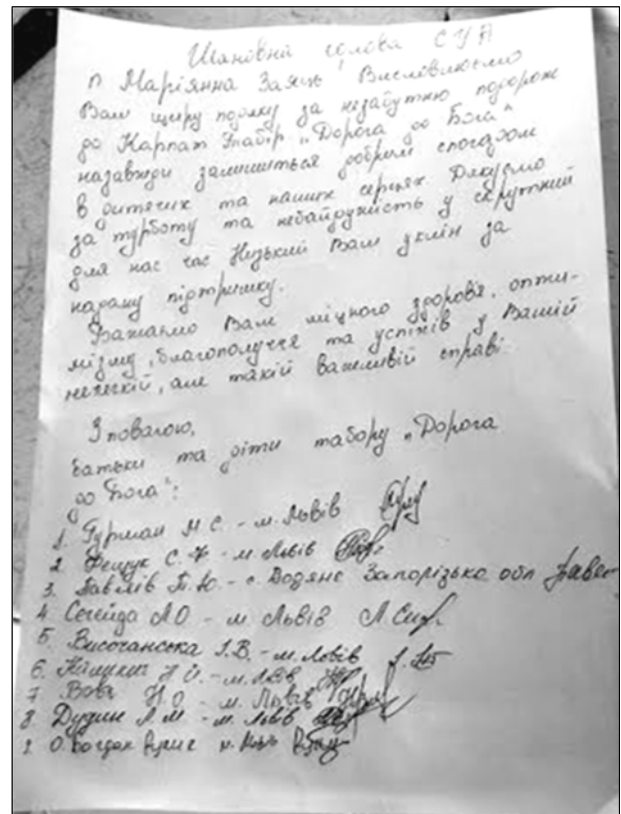 Шановна голова СУА
п. Маріянна Заяць! Висловлюємо
Вам щиру подяку за незабутню подорож
до Карпат Табір „Дорога до Бога"
назавжди залишиться добрим спогадом
в дитячих та наших серцях. Дякуємо
за турботу та небайдужість у скрутний
для нас час Низький Вам уклін за
надану підтримку.
Бажаємо Вам міцного здоров'я, опти-
мізму, благополуччя та успіхів у Вашій
нелегкій, але такій важливій справі.
З повагою,
батьки та діти табору „Дорога
до Бога":
1. Гурман М С. - м. Львів
2. Фещук С. - м Львів
3. Павлів Т. Ю. - с. Водяне Запорізько обл
4 Сегейда ЛО - м Львів
5. Височанська І.В. - м. Львів
6. - м. Львів
7 Вовк Н.О - м. Львів
8. Дудин Л.М - м. Львів
9. О. Богдан м. Львів